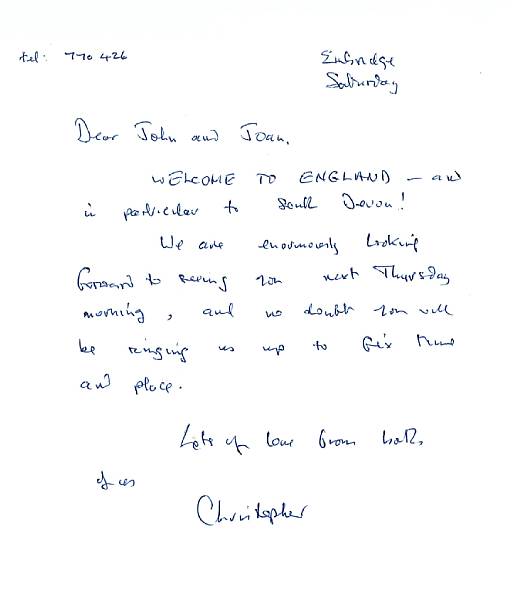 tel: 770 426
Saturday
Dear John and Joan,
WELCOME TO ENGLAND – and
in particular to South Devon!
We are enormously looking
forward to seeing you next Thursday
morning, and no doubt you will
be ringing us up to fix time
and place.
Lots of love from both
of us
Christopher